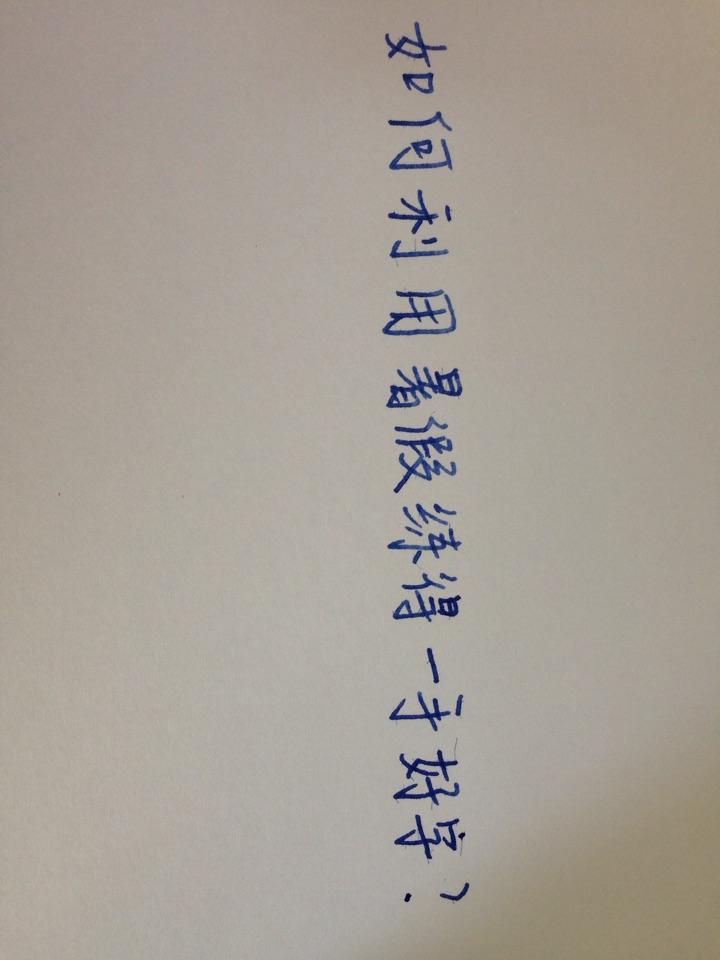 如何利用暑假练得一手好字?